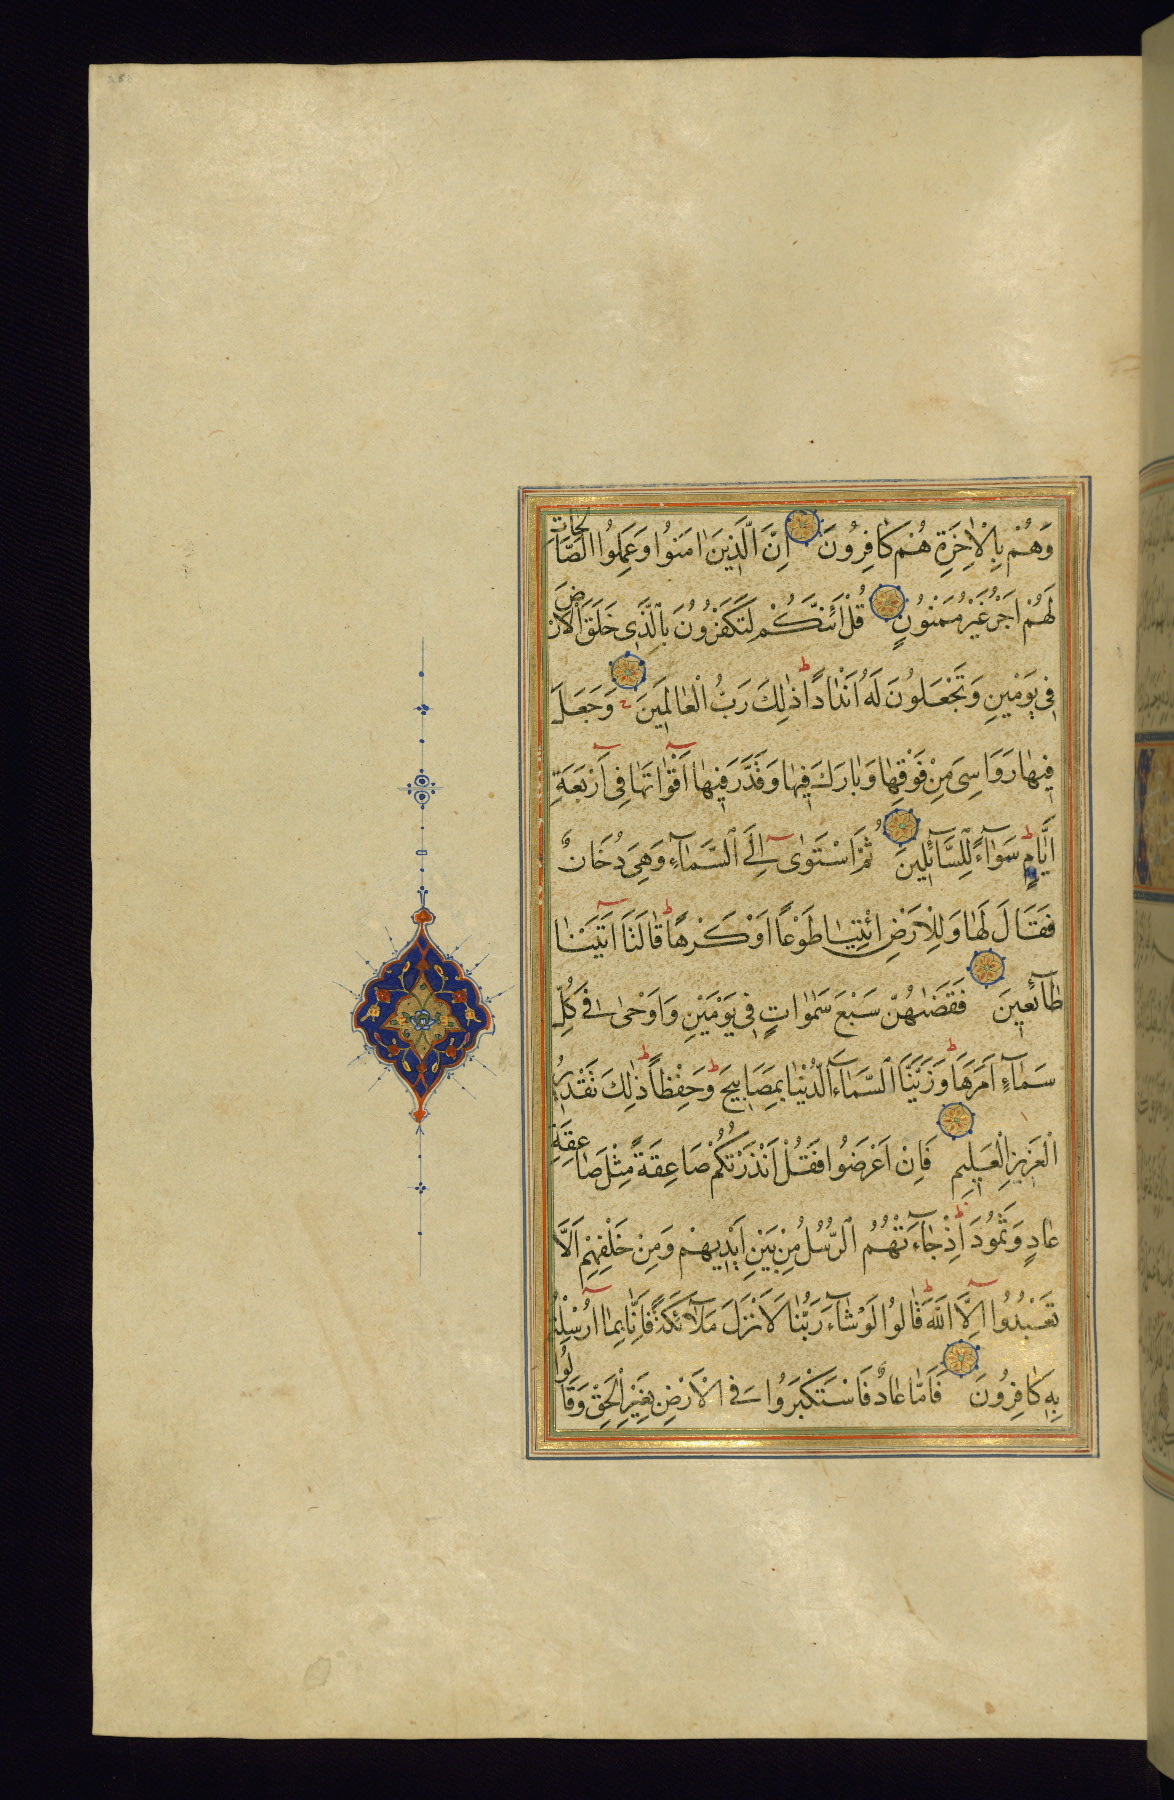 وَهُمْ بِالْاٰخِرَةِ هُمْ كَافِرُونَ اِنَّ الَّذِينَ اٰمَنُوا وَعَمِلُوا الصَّالِحَاتِ
لَهُمْ اَجْرٌ غَيْرُ مَمْنُونٍ قُلْ اَئِنَّكُمْ لَتَكْفُرُونَ بِالَّذِي خَلَقَ الْاَرْضَ
فِي يَوْمَيْنِ وَتَجْعَلُونَ لَهُ اَنْدَادًا ط ذٰلِكَ رَبُّ الْعَالَمِينَ وَجَعَلَ
فِيهَا رَوَاسِيَ مِنْ فَوْقِهَا وَبَارَكَ فِيهَا وَقَدَّرَ فِيهَا اَقْوَاتَهَا فِي اَرْبَعَةِ
اَيَّامٍ ط سَوَآءً لِلسَّآئِلِينَ ثُمَّ اسْتَوٰى اِلَى السَّمَآءِ وَهِيَ دُخَانٌ
فَقَالَ لَهَا وَلِلْاَرْضِ ائْتِيَا طَوْعًا اَوْ كَرْهًا ط قَالَتَا اَتَيْنَا
طَآئِعِينَ فَقَضٰىهُنَّ سَبْعَ سَمٰوَاتٍ فِي يَوْمَيْنِ وَاَوْحٰى فِي كُلِّ
سَمَآءٍ اَمْرَهَا ط وَزَيَّنَّا السَّمَآءَ الدُّنْيَا بِمَصَابِيحَ ط وَحِفْظًا ط ذٰلِكَ تَقْدِيرُ
الْعَزِيزِ الْعَلِيمِ فَاِنْ اَعْرَضُوا فَقُلْ اَنْذَرْتُكُمْ صَاعِقَةً مِثْلَ صَاعِقَةِ
عَادٍ وَثَمُودَ ط اِذْ جَآءَتْهُمُ الرُّسُلُ مِنْ بَيْنِ اَيْدِيهِمْ وَمِنْ خَلْفِهِمْ اَلَّا
تَعْبُدُوا اِلَّا اللّٰهَ ط قَالُوا لَوْ شَآءَ رَبُّنَا لَاَنْزَلَ مَلَآئِكَةً فَاِنَّا بِمَا اُرْسِلْتُمْ
بِهِ كَافِرُونَ فَاَمَّا عَادٌ فَاسْتَكْبَرُوا فِي الْاَرْضِ بِغَيْرِ الْحَقِّ وَقَالُوا